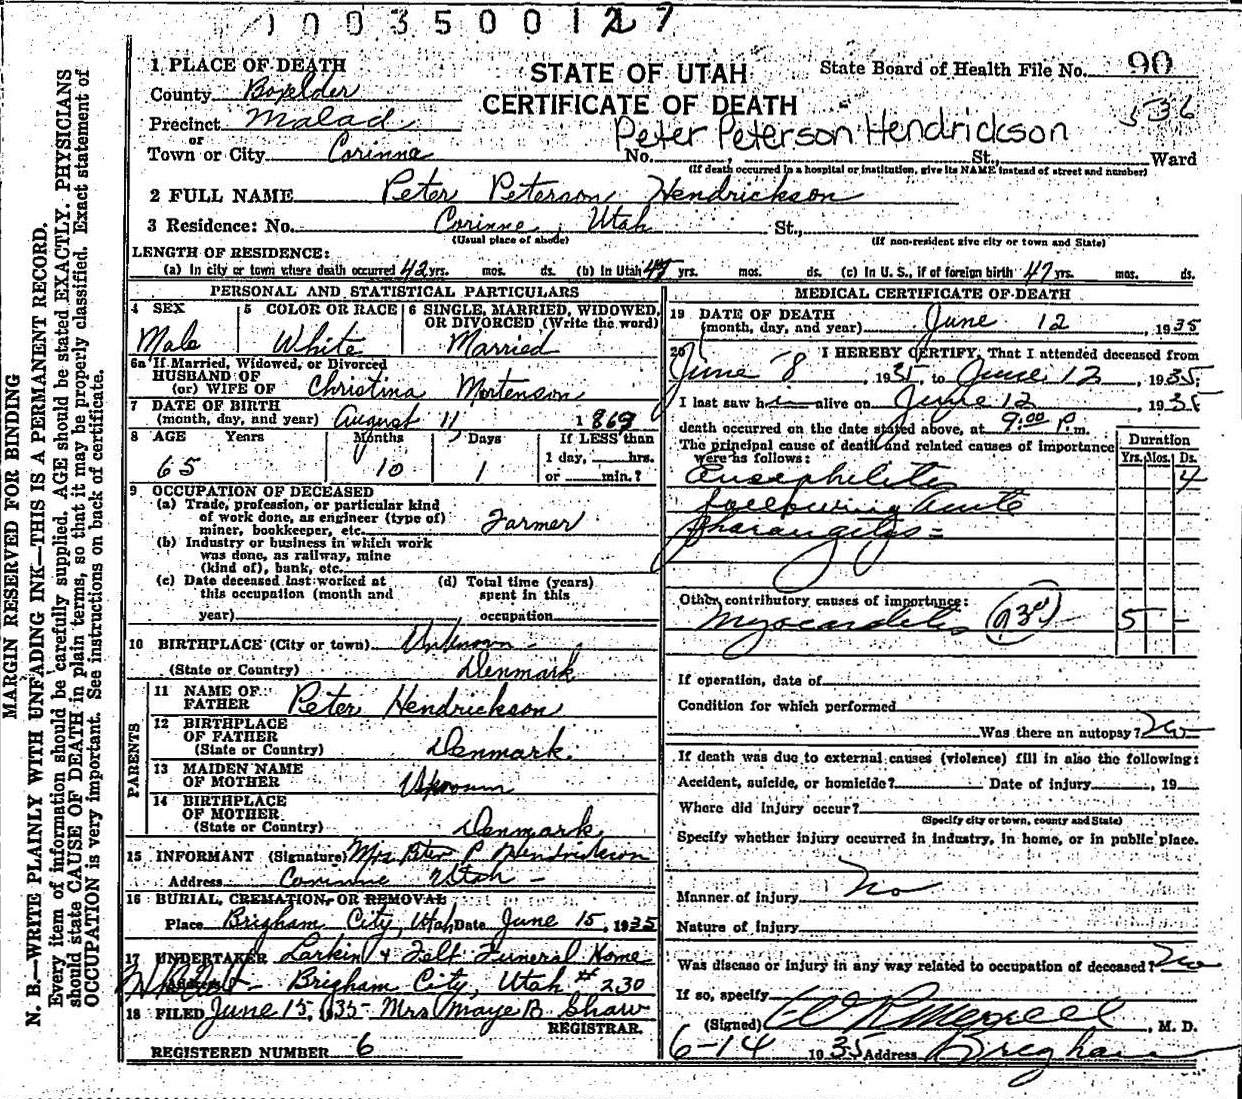 1003500127
1 PLACE OF DEATH
STATE OF UTAH
State Board of Health File No. 90
County Boxelder
CERTIFICATE OF DEATH
536
Precinct Malad
Peter Peterson Hendrickson
or
Town or City Corinne No. , St., Ward
(If death occurred in a hospital or institution, give its NAME instead of street and number)
2 FULL NAME Peter Peterson Hendrickson
3 Residence: No. Corinne, Utah St.,
(Usual place of abode) (If non-resident give city or town and State)
LENGTH OF RESIDENCE:
(a) In city or town where death occurred 42 yrs. mos. ds. (b) In Utah 47 yrs. mos. ds. (c) In U. S., if of foreign birth 47 yrs. mos. ds.
PERSONAL AND STATISTICAL PARTICULARS
4 SEX
Male
5 COLOR OR RACE
White
6 SINGLE, MARRIED, WIDOWED,
OR DIVORCED (Write the word)
Married
6a If Married, Widowed, or Divorced
HUSBAND OF
(or) WIFE OF Christina Mortenson
7 DATE OF BIRTH
(month, day, and year) August 11 1869
8 AGE Years Months Days If LESS than
1 day, hrs.
65 10 1 or min.?
9 OCCUPATION OF DECEASED
(a) Trade, profession, or particular kind
of work done, as engineer (type of)
miner, bookkeeper, etc. Farmer
(b) Industry or business in which work
was done, as railway, mine
(kind of), bank, etc.
(c) Date deceased last worked at
this occupation (month and
year)
(d) Total time (years)
spent in this
occupation
10 BIRTHPLACE (City or town) Unknown -
(State or Country) Denmark
PARENTS
11 NAME OF
FATHER Peter Hendrickson
12 BIRTHPLACE
OF FATHER
(State or Country) Denmark.
13 MAIDEN NAME
OF MOTHER Unknown
14 BIRTHPLACE
OF MOTHER
(State or Country) Denmark
15 INFORMANT (Signature) Mrs Peter P Hendrickson
Address Corinne Utah -
16 BURIAL, CREMATION, OR REMOVAL
Place Brigham City, Utah Date June 15, 1935
17 UNDERTAKER Larkin & Felt Funeral Home
Brigham City, Utah # 230
18 FILED June 15, 1935 - Mrs Maye B Shaw
REGISTRAR.
REGISTERED NUMBER 6
MEDICAL CERTIFICATE OF DEATH
19 DATE OF DEATH
(month, day, and year) June 12, 1935
20 I HEREBY CERTIFY, That I attended deceased from
June 8, 1935, to June 12, 1935;
I last saw h alive on June 12, 1935
death occurred on the date stated above, at 9:00 P.m.
The principal cause of death and related causes of importance
were as follows:
Duration
Yrs. Mos. Ds.
Encephilites 4
following acute
pharangitys =
Other contributory causes of importance:
Myocarditis 5 -
If operation, date of
Condition for which performed
Was there an autopsy? No
If death was due to external causes (violence) fill in also the following:
Accident, suicide, or homicide? Date of injury , 19
Where did injury occur?
(Specify city or town, county and State)
Specify whether injury occurred in industry, in home, or in public place.
Manner of injury No
Nature of injury
Was disease or injury in any way related to occupation of deceased? No
If so, specify
(Signed) , M. D.
6-14 1935 Address Brigham
MARGIN RESERVED FOR BINDING
N. B.—WRITE PLAINLY WITH UNFADING INK—THIS IS A PERMANENT RECORD.
Every item of information should be carefully supplied. AGE should be stated EXACTLY. PHYSICIANS
should state CAUSE OF DEATH in plain terms, so that it may be properly classified. Exact statement of
OCCUPATION is very important. See instructions on back of certificate.